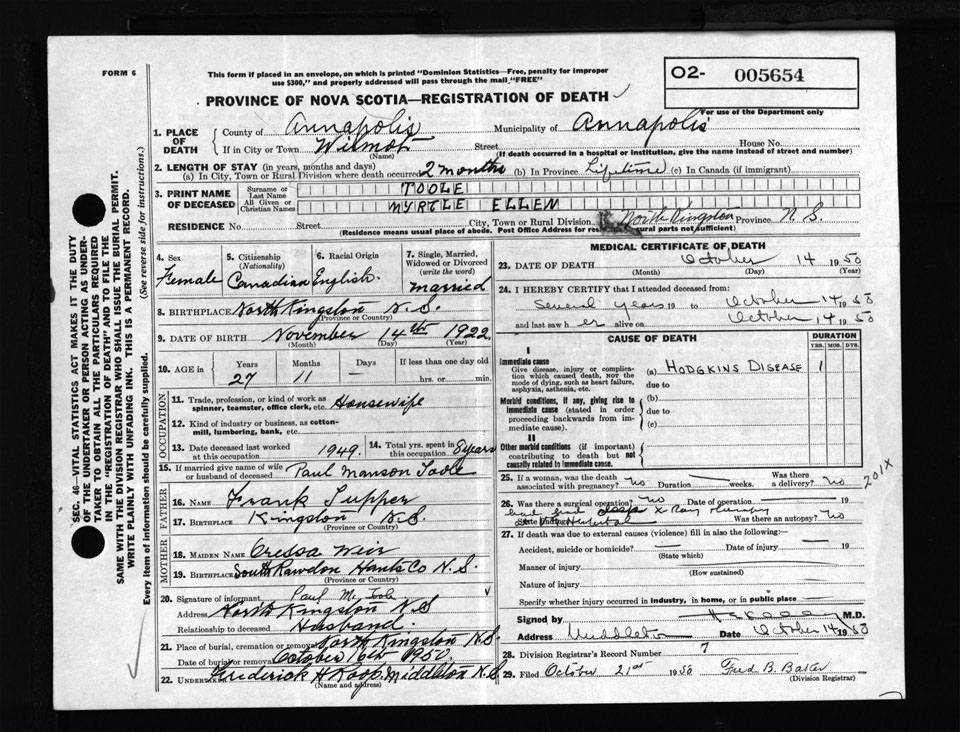 FORM 6
This form if placed in an envelope, on which is printed "Dominion Statistics—Free, penalty for improper
use $300," and properly addressed will pass through the mail "FREE"
O2- 005654
For use of the Department only
PROVINCE OF NOVA SCOTIA—REGISTRATION OF DEATH
1. PLACE OF DEATH { County of Annapolis Municipality of Annapolis
If in City or Town Wilmot Street House No.
(Name) (If death occurred in a hospital or institution, give the name instead of street and number)
2. LENGTH OF STAY (in years, months and days)
(a) In City, Town or Rural Division where death occurred 2 months (b) In Province Lifetime (c) In Canada (if immigrant)
3. PRINT NAME OF DECEASED { Surname or Last Name TOOLE
All Given or Christian Names MYRTLE ELLEN
RESIDENCE No. Street City, Town or Rural Division North Kingston Province N.S.
(Residence means usual place of abode. Post Office Address for residence in rural parts not sufficient)
4. Sex Female
5. Citizenship (Nationality) Canadian
6. Racial Origin English.
7. Single, Married, Widowed or Divorced (write the word) married
8. BIRTHPLACE North Kingston N.S.
(Province or Country)
9. DATE OF BIRTH November 14th 1922
(Month) (Day) (Year)
10. AGE in { Years 27 Months 11 Days — If less than one day old hrs. or min.
OCCUPATION
11. Trade, profession, or kind of work as spinner, teamster, office clerk, etc. Housewife
12. Kind of industry or business, as cotton-mill, lumbering, bank, etc.
13. Date deceased last worked at this occupation 1949.
14. Total yrs. spent in this occupation 8 years
15. If married give name of wife or husband of deceased Paul Manson Toole
FATHER
16. NAME Frank Tupper
17. BIRTHPLACE Kingston N.S.
(Province or Country)
MOTHER
18. MAIDEN NAME Cressa Weir
19. BIRTHPLACE South Rawdon Hants Co N.S.
(Province or Country)
20. Signature of informant Paul M. Toole
Address North Kingston N.S
Relationship to deceased Husband.
21. Place of burial, cremation or removal North Kingston N.S.
Date of burial or removal October 16th 1950.
22. UNDERTAKER Frederick H Roop, Middleton N.S.
(Name and address)
MEDICAL CERTIFICATE OF DEATH
23. DATE OF DEATH October 14 1950
(Month) (Day) (Year)
24. I HEREBY CERTIFY that I attended deceased from:
Several years 19 to October 14 1950
and last saw her alive on October 14 1950
CAUSE OF DEATH
DURATION
YRS. MOS. DYS.
I
Immediate cause
Give disease, injury or complication which caused death, not the mode of dying, such as heart failure, asphyxia, asthenia, etc.
(a) HODGKINS DISEASE 1
due to
Morbid conditions, if any, giving rise to immediate cause (stated in order proceeding backwards from immediate cause).
(b)
due to
(c)
II
Other morbid conditions (if important) contributing to death but not causally related to immediate cause.
25. If a woman, was the death associated with pregnancy? no Duration weeks. Was there a delivery? no
201X
26. Was there a surgical operation? no Date of operation 19
had had deep X Ray therapy
Hospital Was there an autopsy? no
27. If death was due to external causes (violence) fill in also the following:—
Accident, suicide or homicide? Date of injury 19
(State which)
Manner of injury
(How sustained)
Nature of injury
Specify whether injury occurred in industry, in home, or in public place
Signed by M.D.
Address Middleton Date October 14 1950
28. Division Registrar's Record Number 7
29. Filed October 21st 1950 Fred B. Baker
(Division Registrar)
SEC. 46—VITAL STATISTICS ACT MAKES IT THE DUTY
OF THE UNDERTAKER OR PERSON ACTING AS UNDER-
TAKER TO OBTAIN ALL THE PARTICULARS REQUIRED
IN THE "REGISTRATION OF DEATH" AND TO FILE THE
SAME WITH THE DIVISION REGISTRAR WHO SHALL ISSUE THE BURIAL PERMIT.
WRITE PLAINLY WITH UNFADING INK. THIS IS A PERMANENT RECORD.
Every item of information should be carefully supplied. (See reverse side for instructions.)